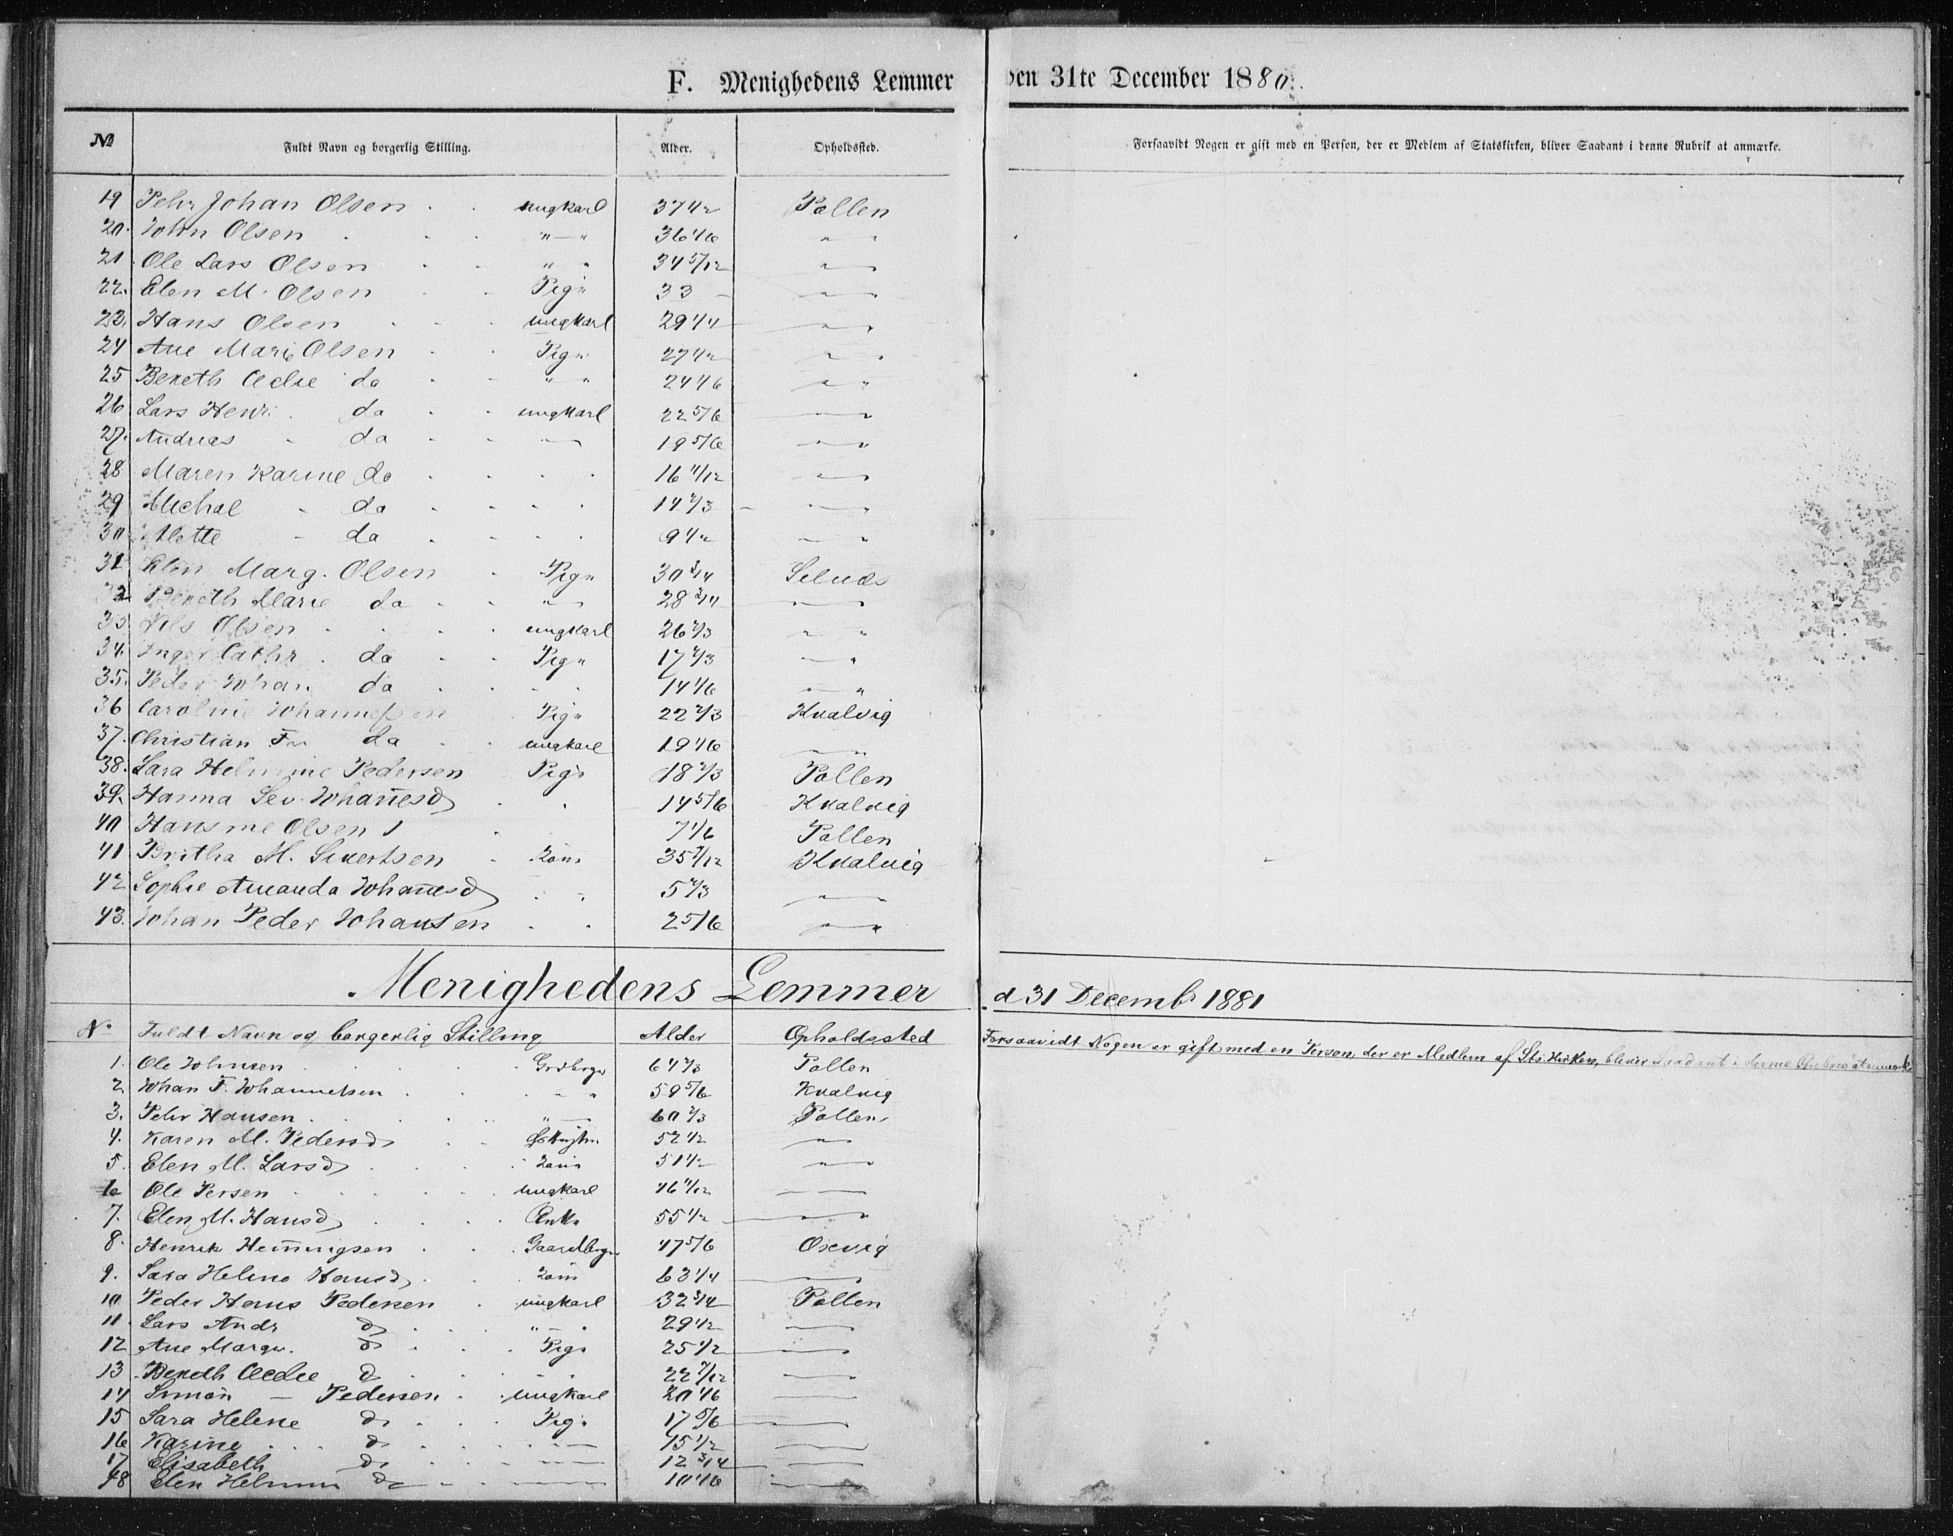 F. Menighedens Lemmer den 31te December 1880.
№ Fuldt Navn og borgerlig Stilling. Alder. Opholdssted. Forsaavidt Nogen er gift med en Person, der er Medlem af Statskirken, bliver Saadant i denne Rubrik at anmærke.
19 Pehr Johan Olsen . . ungkarl 37 1/2 Pollen
20. John Olsen . . . "—" 36 1/6 " "
21. Ole Lars Olsen . . " " 34 5/12 "—"
22. Elen M. Olsen . Pige 33 — "—"
23. Hans Olsen . . . ungkarl 29 1/4 "—"
24 Ane Marie Olsen . . Pige 27 1/2 "—"
25 Bereth Cecilie do . . " " 24 1/6 " "
26. Lars Henr. do . . ungkarl 22 5/6 "—"
27. Andreas . do . . "—" 19 5/6 "—"
28 Maren Karine do . . . 16 11/12 "—"
29 Michal . do . . . . 14 2/3 — "—"
30 Mette - do . . . . 9 1/2 "—"
31 Elen Marg. Olsen . Pige 30 3/4
32 Bereth Marie do . . "—" 28 3/4 "—"
33 Nils Olsen . . . . ungkarl 26 2/3 " "
34. Inger Cathr. do . . Pige 17 2/3 "—"
35. Peder Johan do . . . 14 1/6 "—"
36 Caroline Johannessen . Pige 22 2/3 Kvalvig
37. Christian Fr. do . . ungkarl 19 1/6 "—"
38. Sara Helmine Pedersen . Pige 18 2/3 Pollen
39. Hanna Sev. Johanesd . . 14 5/6 Kvalvig
40 Hansine Olsen . . 7 1/6 Pollen
41 Britha M. Sivertsen . Kone 35 7/12 Kvalvig
42 Sophie Amanda Johanesd . . 5 2/3 "—"
43. Johan Peder Johansen . . 2 5/6 "—"
Menighedens Lemmer d 31 Decemb 1881
No Fuldt Navn og borgerlig Stilling Alder Opholdssted Forsaavidt Nogen er gift med en Person der er Medlem af Sts Kirken, bliver Saadant i denne
1. Ole Johnsen . . . . Grdbrgr 64 2/3 Pollen
2. Johan F. Johannesen . . . " " 59 5/6 Kvalvig
3. Pehr Hansen . . . . . "—" 60 2/3 Pollen
4. Karen M. Pedersd . . . 52 1/2 "—"
5. Elen M. Larsd . . . . Kone 51 1/2 "—"
6 Ole Persen . . . . ungkarl 46 11/12 "—"
7. Elen M. Hansd . . . Enke 55 1/2 "—"
8. Henrik Hemingsen . . . Gaardbrgr 47 5/6 Oxvig
9. Sara Helene Hansd . . Kone 63 1/4 "—"
10 Peder Hans Pedersen . ungkarl 32 3/4 Pollen
11. Lars Andr do . . "—" 29 1/2 "—"
12 Ane Margr. do . . Pige 25 1/2 "—"
13 Bereth Cecilie do . . . 22 7/12 "—"
14 Simon — Pedersen . . ungkarl 20 1/6 "—"
15 Sara Helene do . . Pige 17 5/6 "—"
16 Karine . . . do . . . "—" 15 1/2 "—"
17 Elisabeth do . . "—" 12 3/4 "—"
18 Elen Helmine do — "—" 10 1/6 "—"